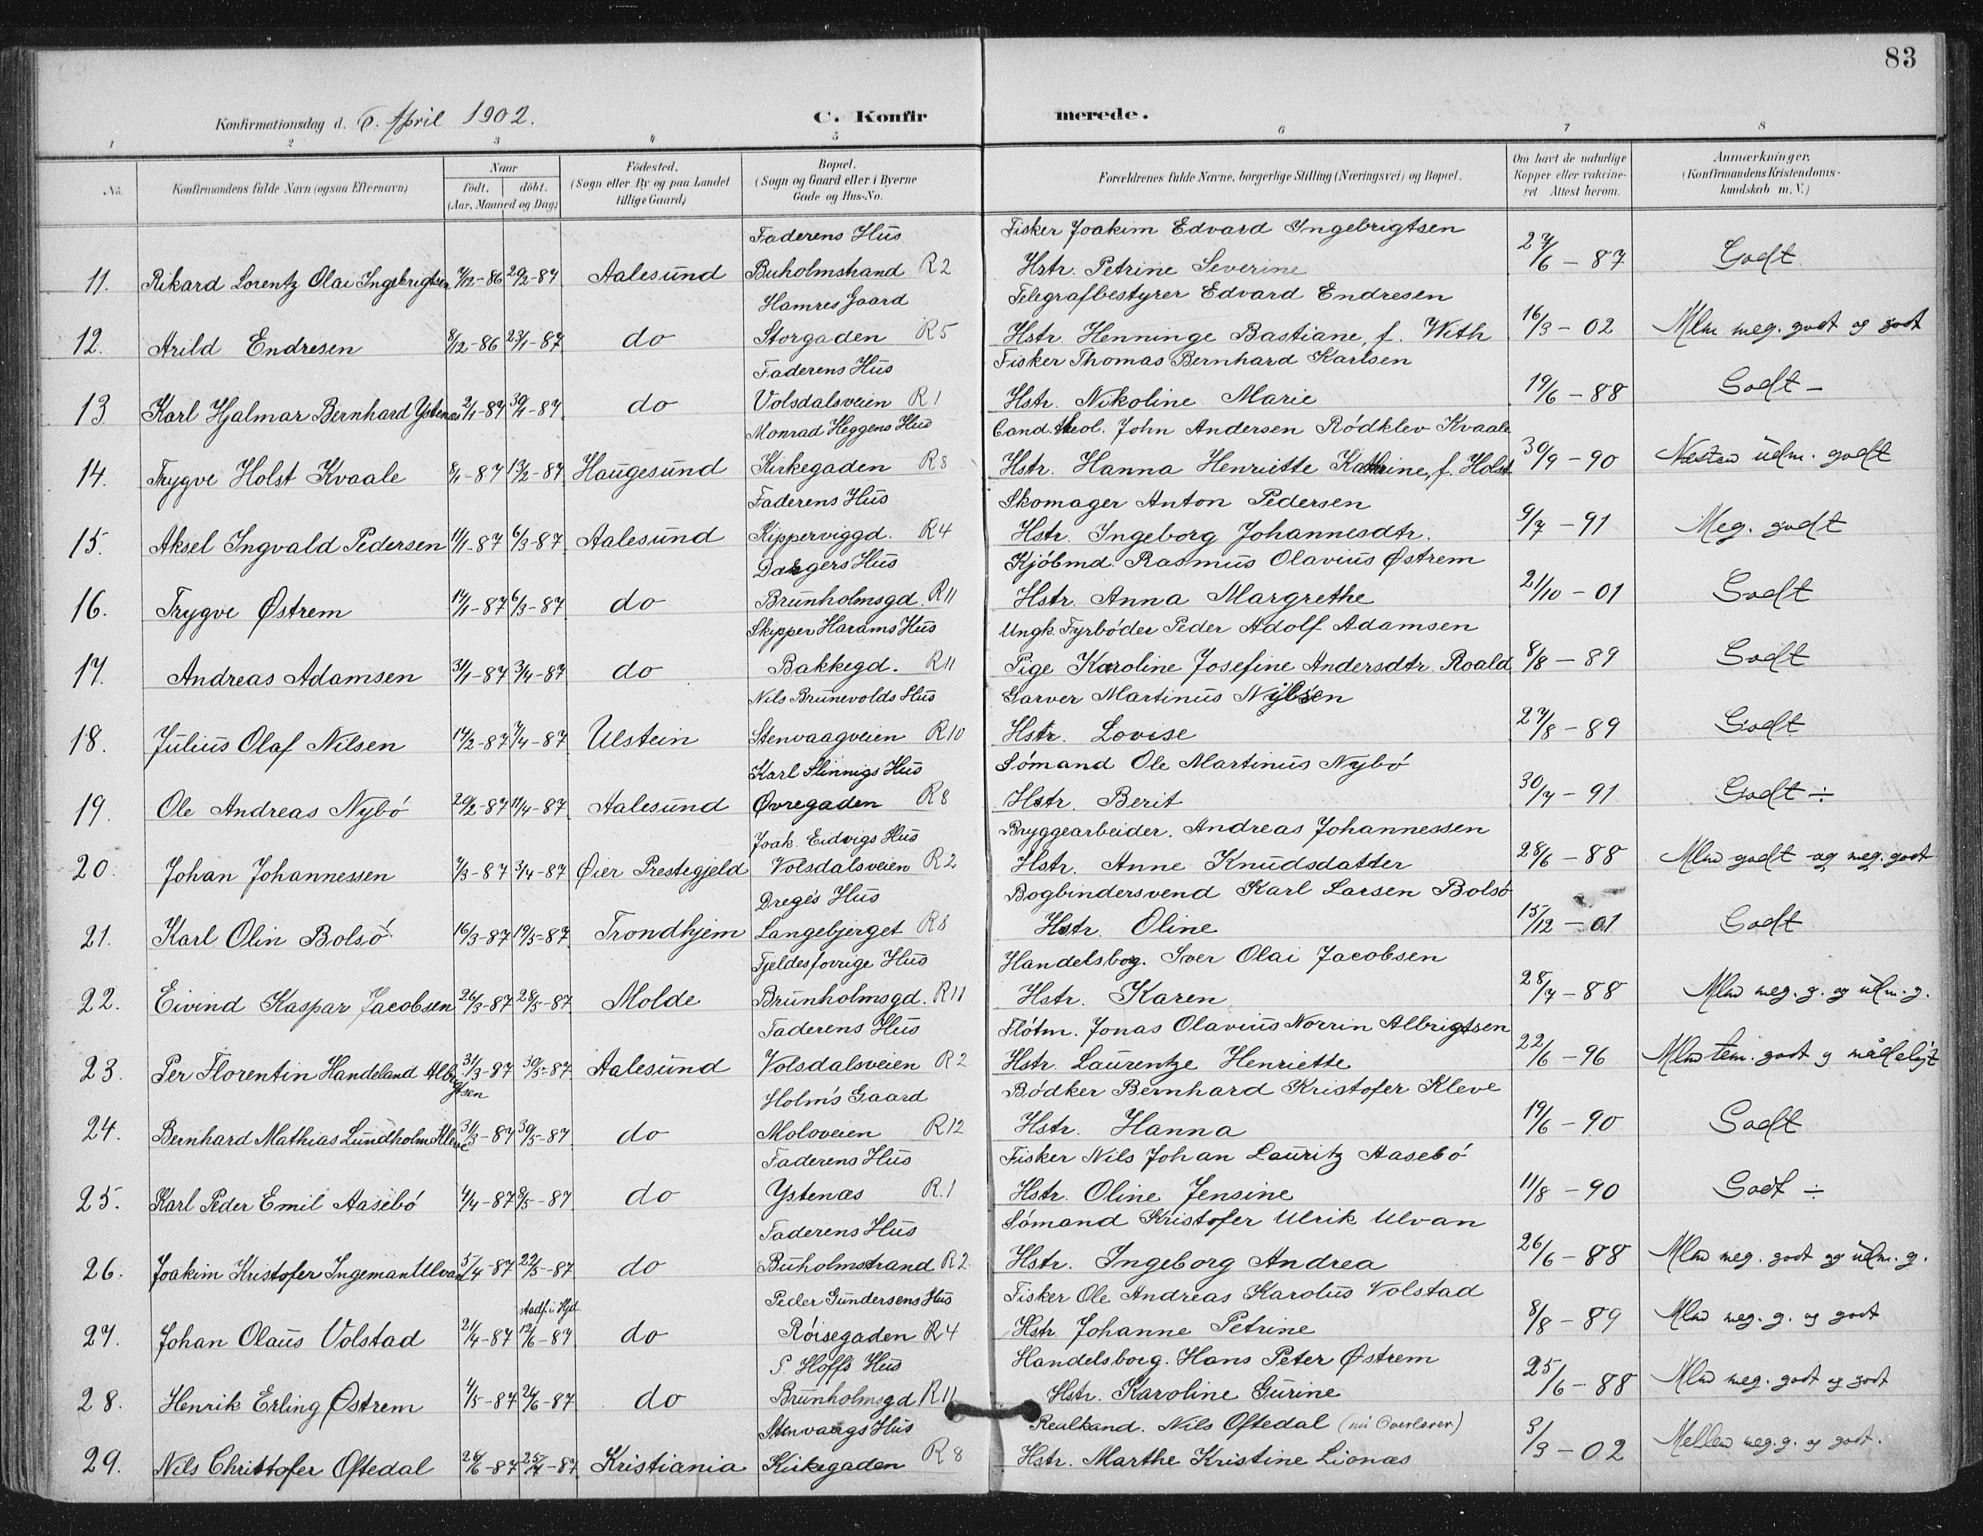 83
Konfirmationsdag d. 6. April 1902.
C. Konfirmerede.
1 2 3 4 5 6 7 8
No.
Konfirmandens fulde Navn (ogsaa Efternavn)
Naar
født. døbt.
(Aar, Maaned og Dag)
Fødested.
(Sogn eller By og paa Landet
tillige Gaard)
Bopæl.
(Sogn og Gaard eller i Byerne
Gade og Hus-No.
Forældrenes fulde Navne, borgerlige Stilling (Næringsvei) og Bopæl.
Om havt de naturlige
Kopper eller vakcine-
ret Attest herom.
Anmærkninger.
(Konfirmandens Kristendoms-
kundskab m. V.)
Faderens Hus Fisker Joakim Edvard Ingebrigtsen
11. Rikard Lorentz Olai Ingebrigtsen 7/12-86 20/2-87 Aalesund Buholmstrand R2 Hstr. Petrine Severine 27/6 - 87 Godt
Hamres Gaard Telegrafbestyrer Edvard Endresen
12. Arild Endresen 8/12-86 23/1-87 do Storgaden R5 Hstr. Henninge Bastiane, f. With 16/3 - 02 Mlm meg. godt og godt
Faderens Hus Fisker Thomas Bernhard Karlsen
13 Karl Hjalmar Bernhard Ystenæs 2/1-87 30/1-87 do Volsdalsveien R1 Hstr. Nikoline Marie 19/6 - 88 Godt -
Monrad Heggens Hus Cand. theol. John Andersen Rødklev Kvaale
14. Trygve Holst Kvaale 8/1-87 13/2-87 Haugesund Kirkegaden R8 Hstr. Hanna Henriette Kathrine, f. Holst 30/9 - 90 Næsten udm. godt
Faderens Hus Skomager Anton Pedersen
15. Aksel Ingvald Pedersen 11/1-87 6/3-87 Aalesund Kipperviggd. R4 Hstr. Ingeborg Johannesdtr. 9/7 - 91 Meg. godt
Hus Kjøbmd. Rasmus Olavius Østrem
16. Trygve Østrem 14/1-87 6/3-87 do Brunholmsgd. R11 Hstr. Anna Margrethe 21/10 - 01 Godt
Skipper Harams Hus Ungk. Fyrbøder Peder Adolf Adamsen
17. Andreas Adamsen 31/1-87 3/4-87 do Bakkegd. R11 Pige Karoline Josefine Andersdtr. Roald 8/8 - 89 Godt
Nils Brunevolds Hus Garver Martinus
18. Julius Olaf Nilsen 14/2-87 7/4-87 Ulstein Stenvaagveien R10 Hstr. Lovise 27/8 - 89 Godt
Karl Slinnigs Hus Sømand Ole Martinus Nybø
19. Ole Andreas Nybø 20/2-87 11/4-87 Aalesund Øvregaden R8 Hstr. Berit 30/7 - 91 Godt ÷
Joak. Eidvigs Hus Bryggearbeider. Andreas Johannessen
20. Johan Johannessen 7/3-87 3/4-87 Øier Prestegjeld Volsdalsveien R2 Hstr. Anne Knudsdatter 28/6 - 88 Mlm godt og meg. godt
Dreges Hus Bogbindersvend Karl Larsen Bolsø
21. Karl Olin Bolsø 16/3-87 19/5-87 Trondhjem Langebjerget R8 Hstr. Oline 15/12 - 01 Godt
Hus Handelsborg. Iver Olai Jacobsen
22. Eivind Kaspar Jacobsen 26/3-87 28/5-87 Molde Brunholmsgd. R11 Hstr. Karen 28/7 - 88 Mlm meg. g. og udm. g.
Faderens Hus Fløtm. Jonas Olavius Norrin Albrigtsen
23. Per Florentin Handeland Albrigtsen 31/3-87 30/5-87 Aalesund Volsdalsveien R2 Hstr. Laurentze Henriette 22/6 - 96 Mlm tem. godt og mådeligt
Holm's Gaard Bødker Bernhard Kristofer Kleve
24. Bernhard Mathias Lundholm Kleve 31/3-87 30/5-87 do Moloveien R12 Hstr. Hanna 19/6 - 90 Godt
Faderens Hus Fisker Nils Johan Lauritz Aasebø
25. Karl Peder Emil Aasebø 4/4-87 8/5-87 do Ystenæs R.1 Hstr. Oline Jensine 11/8 - 90 Godt ÷
Faderens Hus Sømand Kristofer Ulrik Ulvan
26. Joakim Kristofer Ingeman Ulvan 5/4-87 22/5-87 do Buholmstrand R2 Hstr. Ingeborg Andrea 26/6 - 88 Mlm meg. godt og udm. g.
stadf. i Kjd. Peder Gundersens Hus Fisker Ole Andreas Karolus Volstad
27. Johan Olaus Volstad 21/4-87 12/6-87 do Røisegaden R4 Hstr. Johanne Petrine 8/8 - 89 Mlm meg. g. og godt
P. Hoffs Hus Handelsborg. Hans Peter Østrem
28. Henrik Erling Østrem 4/5-87 24/6-87 do Brunholmsgd R11 Hstr. Karoline Gurine 25/6 - 88 Mlm meg. godt og godt
Stenvaags Hus Realkand. Nils Oftedal (nu Overlærer)
29. Nils Christtofer Oftedal 24/6-87 25/7-87 Kristiania Kirkegaden R8 Hstr. Marthe Kristine Lionæs 3/3 - 02 Mellem meg. g. og godt.